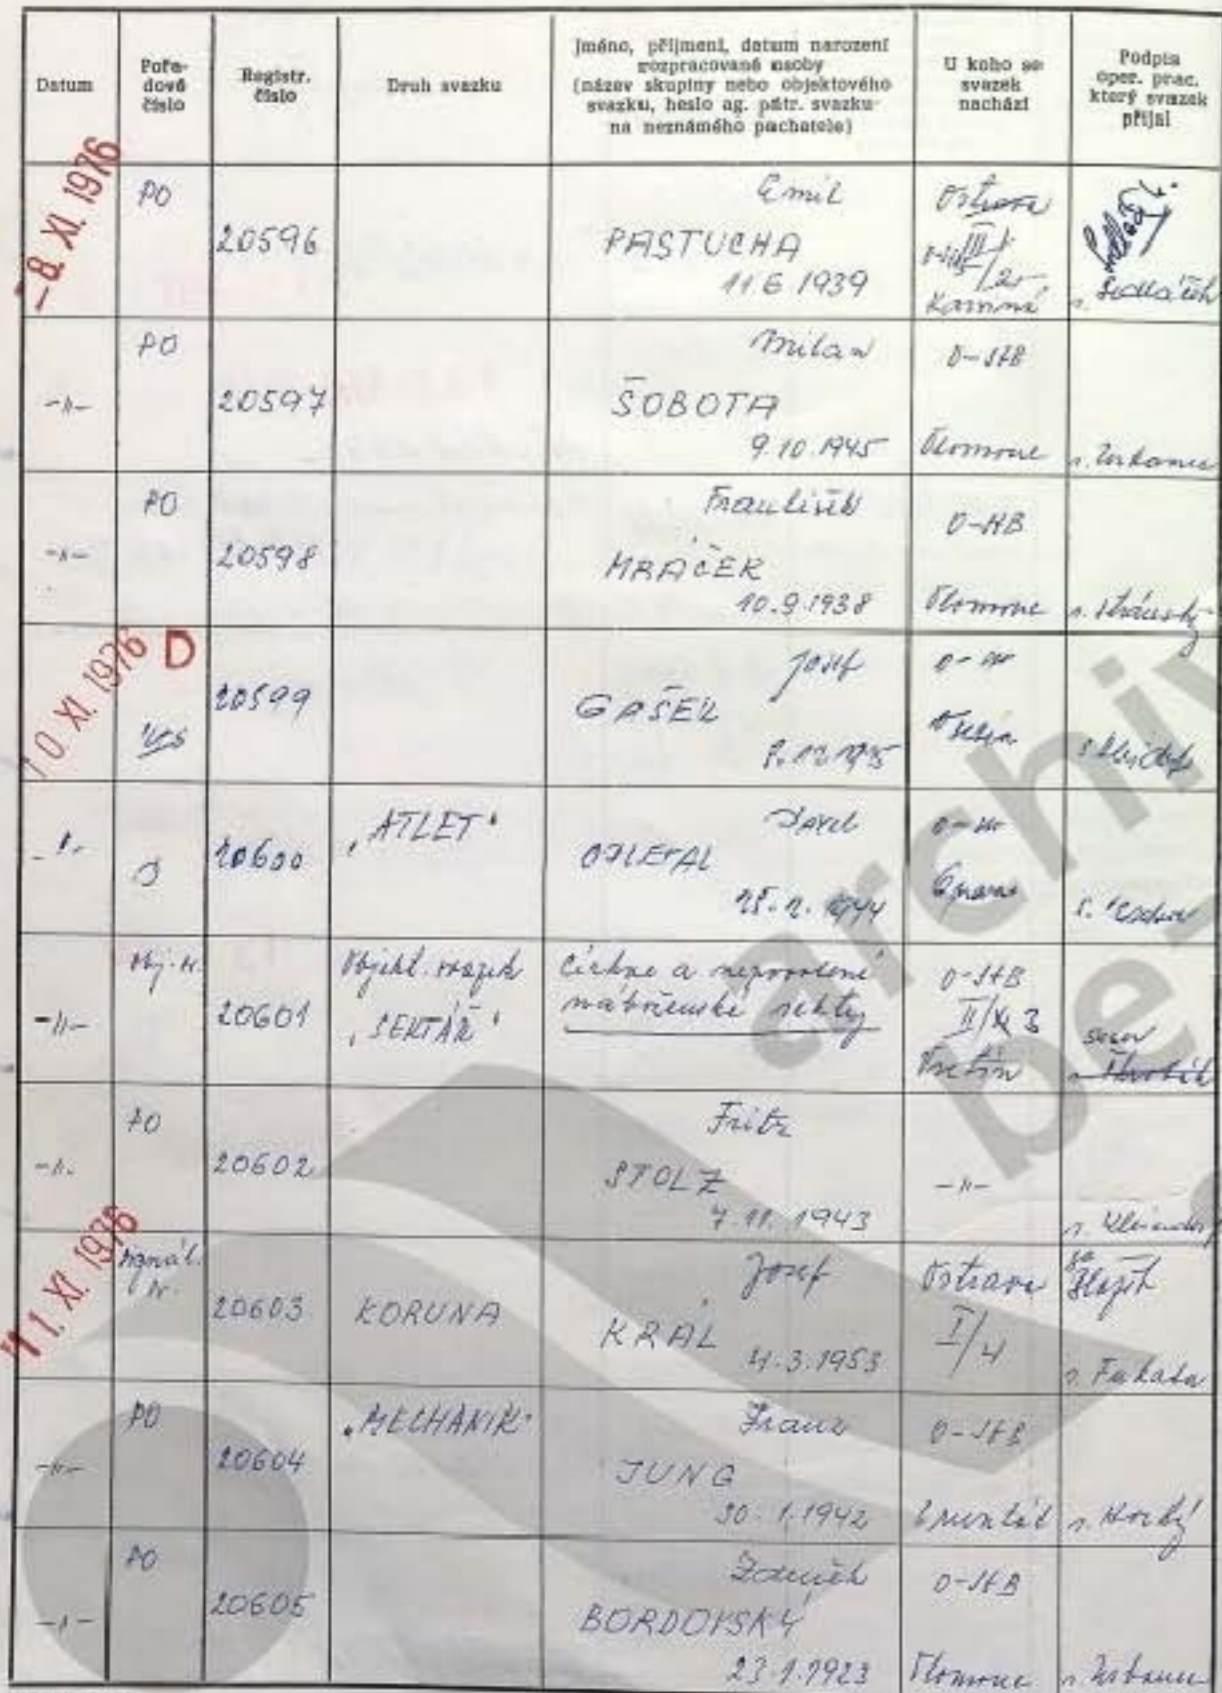 Datum
Pořa-
dové
číslo
Registr.
číslo
Druh svazku
Jméno, příjmení, datum narození
rozpracované osoby
(název skupiny nebo objektového
svazku, heslo ag. pátr. svazku
na neznámého pachatele)
U koho se
svazek
nachází
Podpis
oper. prac.
který svazek
přijal
-8. XI. 1976
PO
20596
Emil
PASTUCHA
11.6.1939
Ostrava
Karviná
Sedláček
-"-
PO
20597
Milan
ŠOBOTA
9.10.1945
O-StB
Olomouc
-"-
PO
20598
František
MRÁČEK
10.9.1938
O-StB
Olomouc
n. Stránský
10. XI. 1976
D
20599
Josef
GAŠEK
Vsetín
-"-
20600
"ATLET"
Pavel
Opava
-"-
Obj. sv.
20601
Objekt. svazek
"SEKTÁŘ"
Církve a nepovolené
náboženské sekty
O-StB
II/3
Vsetín
-"-
PO
20602
Fritz
STOLZ
7.11.1943
-"-
11. XI. 1976
Signál.
sv.
20603
KORUNA
Josef
KRÁL
4.3.1953
Ostrava
I/4
-"-
PO
20604
"MECHANIK"
Franz
JUNG
30.1.1942
O-StB
Bruntál
-"-
PO
20605
Zdeněk
BORDOVSKÝ
23.1.1923
O-StB
Olomouc
archiv
be